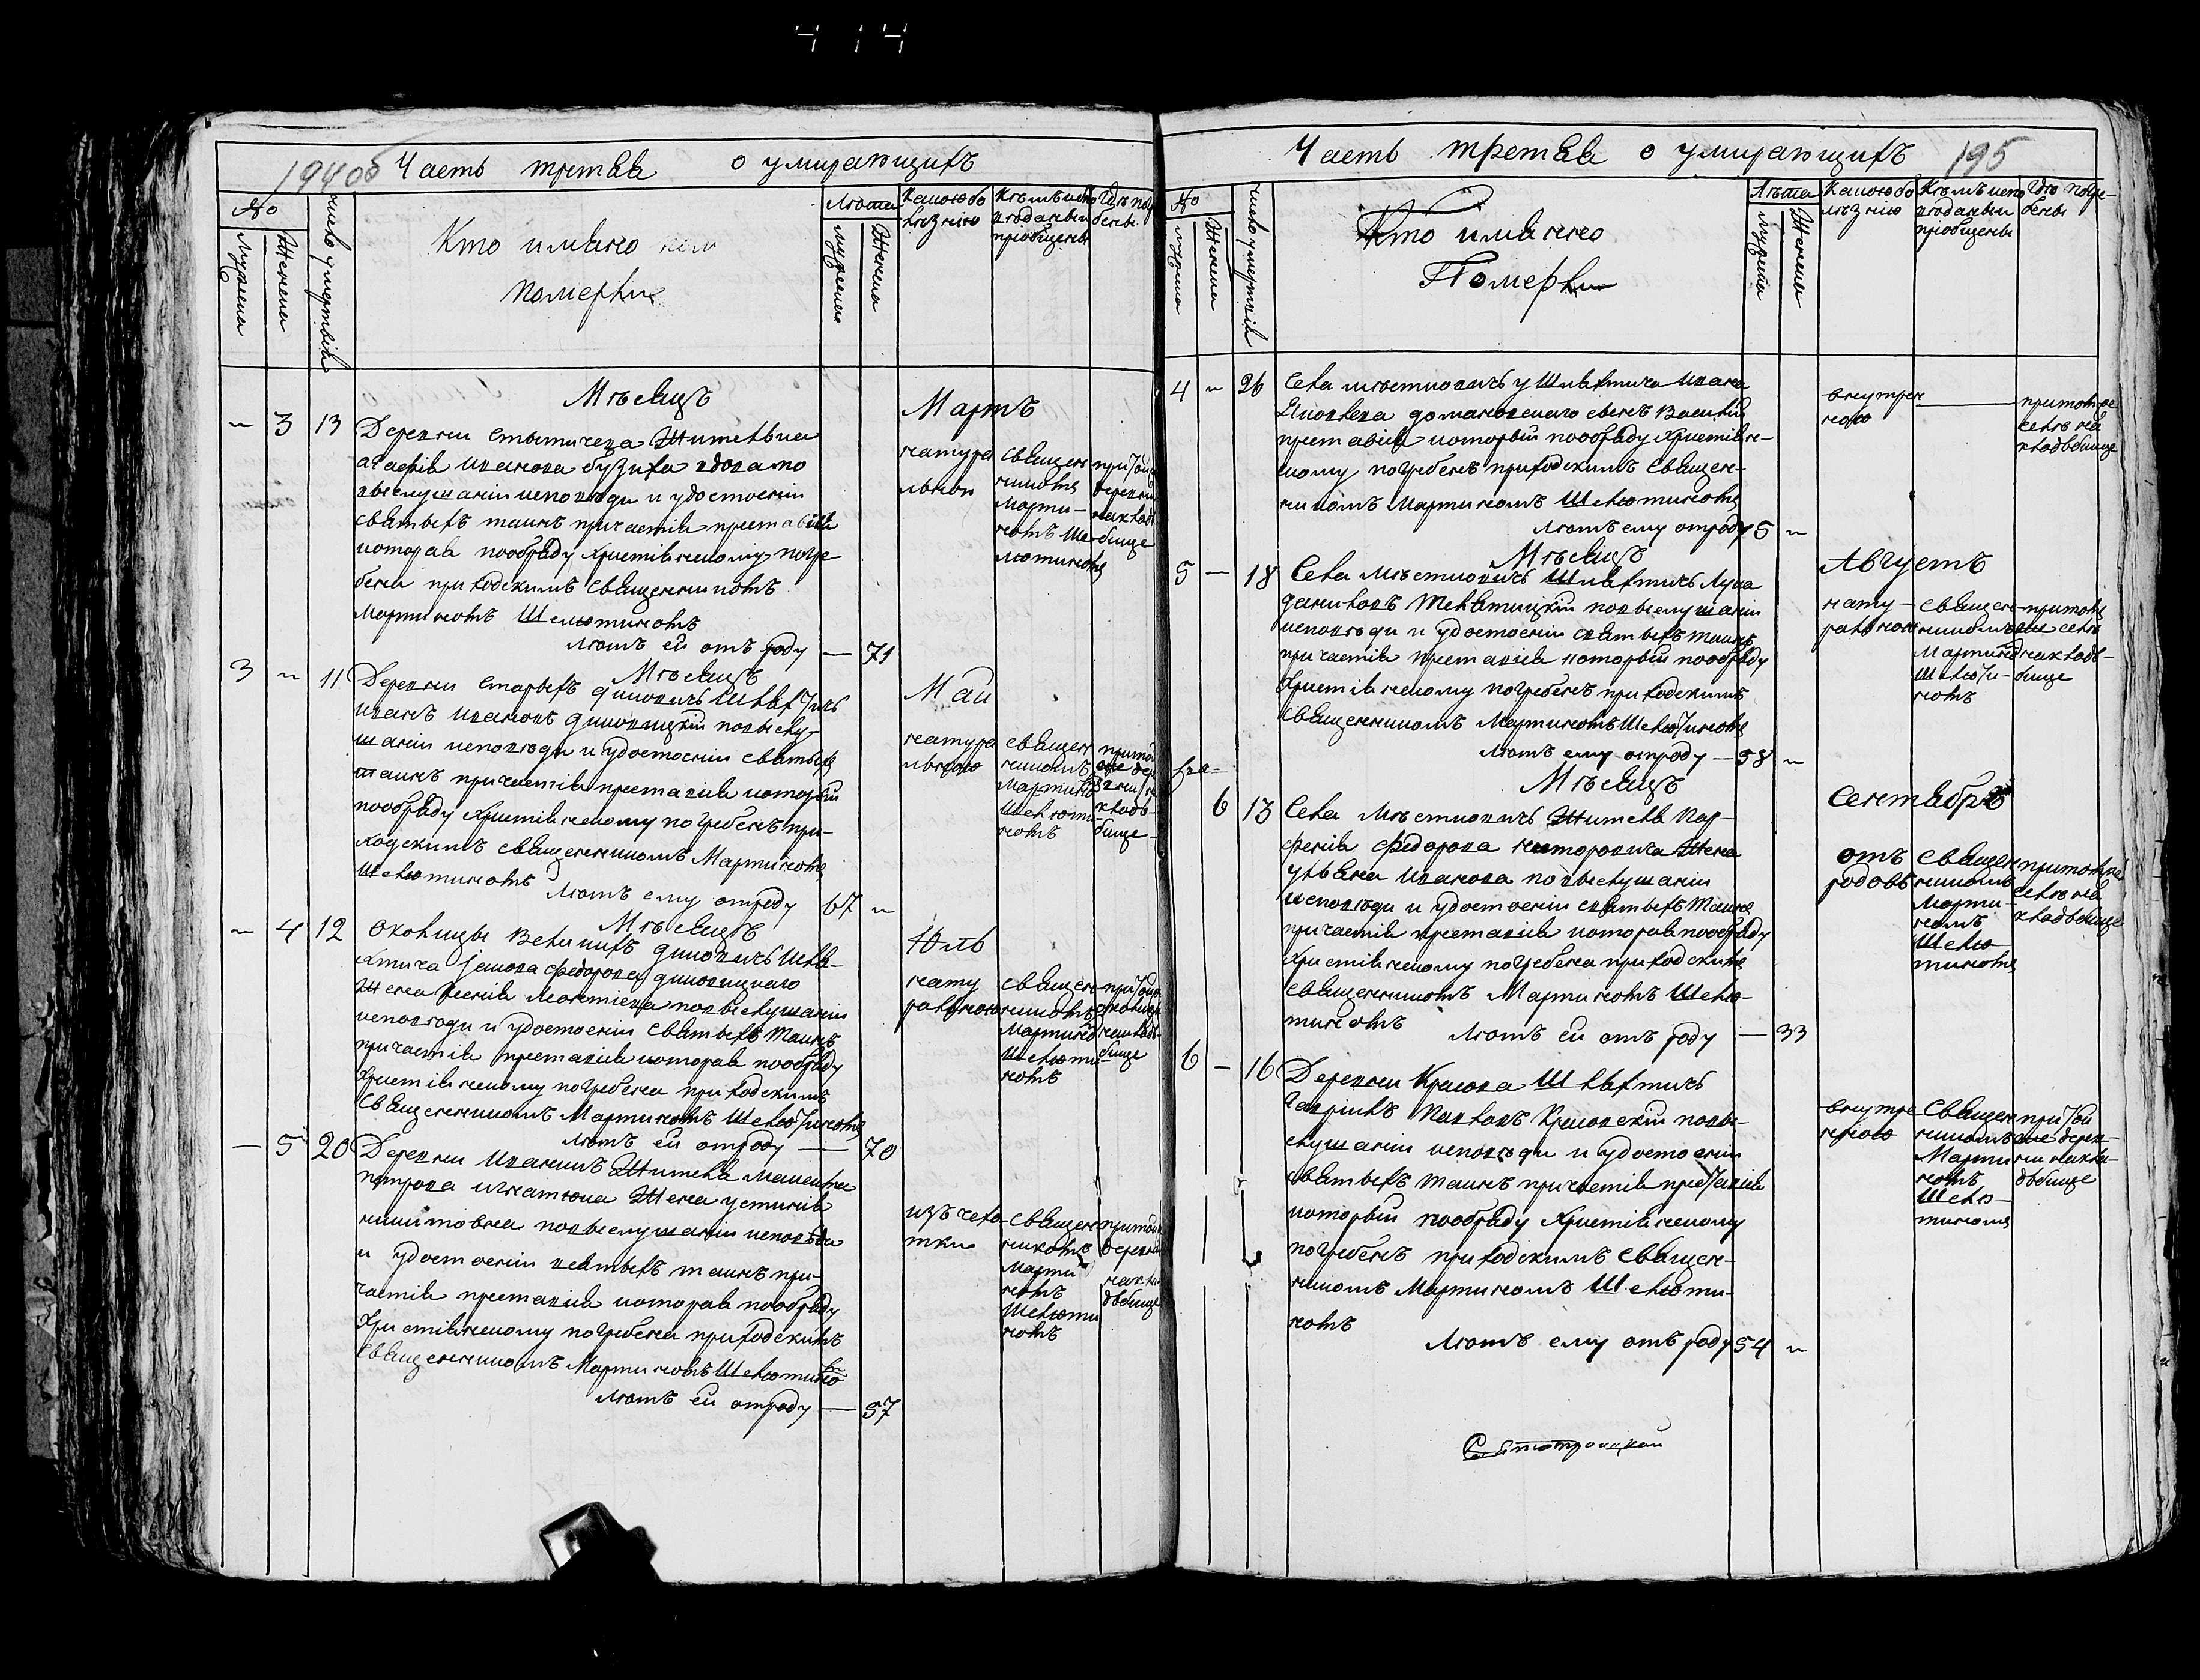 414
194об Часть третяя о умирающихъ
№
Мужска
Женска
число умертвія
Кто имяно
померли
Лѣта
Мужска
Женска
Какою бо
лѣзнію
Кѣмъ испо
вѣданы и
пріобщены
Гдѣ пог
бены
Мѣсяцъ Мартъ
~ 3 13
Деревни Жителька
агафія иванова бузиха вдова по
выслушаніи исповѣди и удостоеніи
святыхъ таинъ причастія преставися
которая пообряду христіянскому погре
бена приходскимъ священникомъ
мартиномъ Шелютиномъ
лѣтъ ей отъ роду — 71
натура
льною
священ
никомъ
Марти-
номъ Ше-
лютиномъ
при той
деревни
на клад
бище
Мѣсяцъ Май
3 ~ 11
Деревни старыхъ диковичъ шляхтичъ
иванъ ивановъ диковицкій повыслу-
шаніи исповѣди и удостоеніи святыхъ
таинъ причастія преставися который
пообряду христіянскому погребенъ при-
ходскимъ священникомъ Мартиномъ
Шелютиномъ
лѣтъ ему отроду 67 ~
натура
льною
священ
никомъ
Мартиномъ
Шелюти
номъ
кладъ-
бище
Мѣсяцъ Юль
~ 4 12
околицы Великихъ диковичъ шля-
хтича якова федорова диковицкаго
жена Леонтіева повыслушаніи
исповѣди и удостоеніи святыхъ Таинъ
причастія преставися которая пообряду
христіянскому погребена приходскимъ
священникомъ Мартиномъ Шелютиномъ
лѣтъ ей отроду — 70
нату
ральною
священ
никомъ
Мартиномъ
Шелюти
номъ
при той
околицы
на кладъ
бище
— 5 20
Деревни Иваникъ Жителя
петрова игнатюка Жена устинія
никитовна повыслушаніи исповѣди
и удостоеніи святыхъ таинъ при-
частія преставися которая пообряду
Христіянскому погребена приходскимъ
священникомъ Мартиномъ Шелютино
лѣтъ ей отроду — 57
изъ чехо
тки
священ
никомъ
Марти
номъ
Шелюти
номъ
при той
деревни
на кла
дьбище
Часть третяя о умирающихъ 195
№
Мужска
Женска
число умертвій
Кто имянно
Померли
Лѣта
Мужска
Женска
Какою бо
лѣзнію
Кѣмъ испо
вѣданы и
пріобщены
Гдѣ погре-
бены
4 ~ 26
Села мѣстковичъ у Шляхтича Ивана
Яковлева домановскаго сынъ Василій
преставися который пообряду христіян-
скому погребенъ приходскимъ Священ-
никомъ Мартиномъ Шелютиномъ
лѣтъ ему отроду 5 ~
внутрен
ною
—
при томже
селѣ на
кладьбище
Мѣсяцъ Августъ
5 — 18
Села Мѣстковичъ Шляхтичъ Лука
даниловъ Телятицкій повыслушаніи
исповѣди и удостоеніи святыхъ таинъ
причастія преставися который пообряду
Христіянскому погребенъ приходскимъ
священникомъ Мартиномъ Шелютиномъ
лѣтъ ему отроду — 58 ~
нату-
ральною
священ-
никомъ
Мартиномъ
Шелюти-
номъ
при томъ
же селѣ
на кладъ-
бище
Мѣсяцъ Сентябръ
6 13
Села Мѣстковичъ Жителя Пар-
фенія федорова Жена
уляна иванова повыслушаніи
исповѣди и удостоеніи святыхъ Таинъ
причастія преставися которая пообряду
Христіянскому погребена приходскимъ
священникомъ Мартиномъ Шелю-
тиномъ лѣтъ ей отъ роду — 33
отъ
родовъ
священ
никомъ
Марти-
номъ
Шелю
тиномъ
при томже
селѣ на
кладьбище
6 — 16
Деревни Крикова Шляхтичъ
Гавріилъ Павловъ Криковскій повы-
слушаніи исповѣди и удостоеніи
святыхъ таинъ причастія преставися
который пообряду Христіянскому
погребенъ приходскимъ Священ-
никомъ Мартиномъ Шелюти-
номъ
лѣтъ ему отъ роду 54 ~
внутре
нною
Священ
никомъ
Марти
номъ
Шелю-
тиномъ
при той
же дерев-
ни на кла-
дьбище